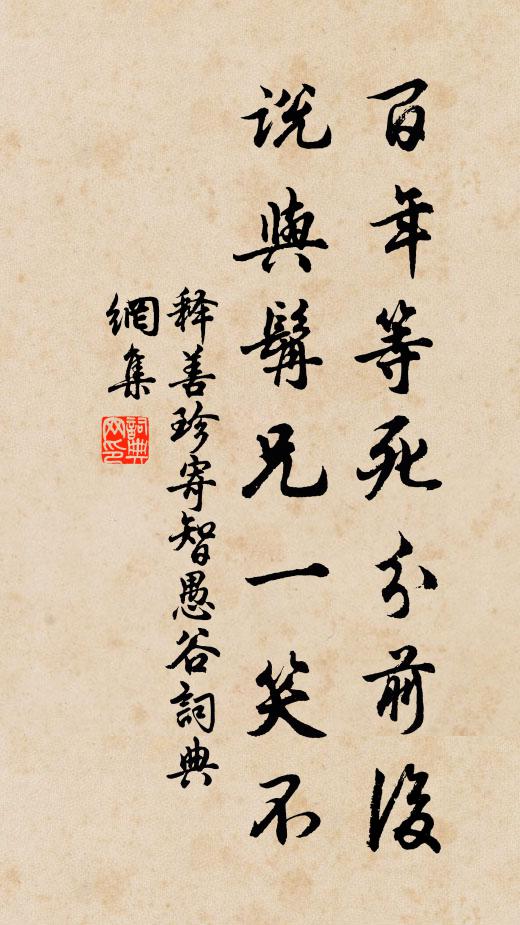 百年等死分前後
說與髯兄一笑不
释善珍寄智愚谷詞典
網集
詞典
网印